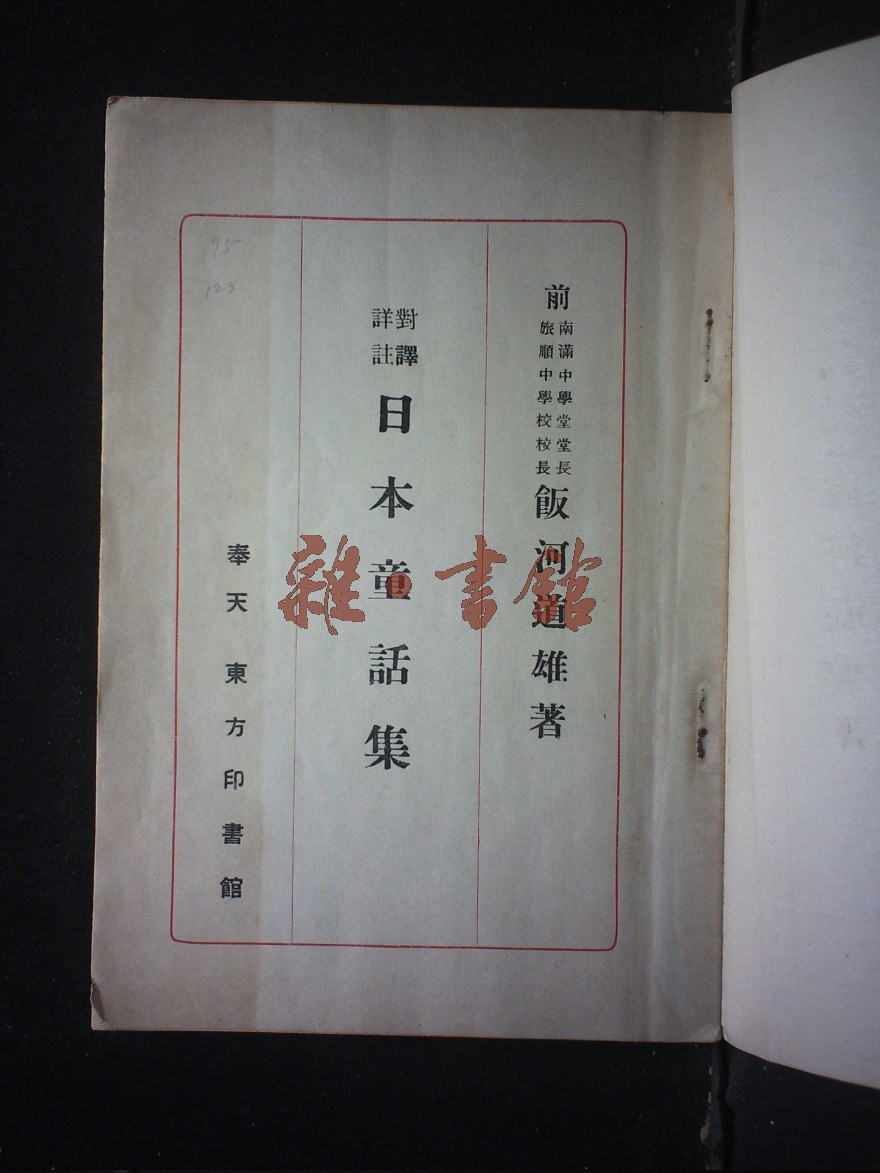 前 南滿中學堂堂長 旅順中學校校長 飯河道雄著
對譯 詳註 日本童話集
奉天 東方印書館
雜·書館
95
128